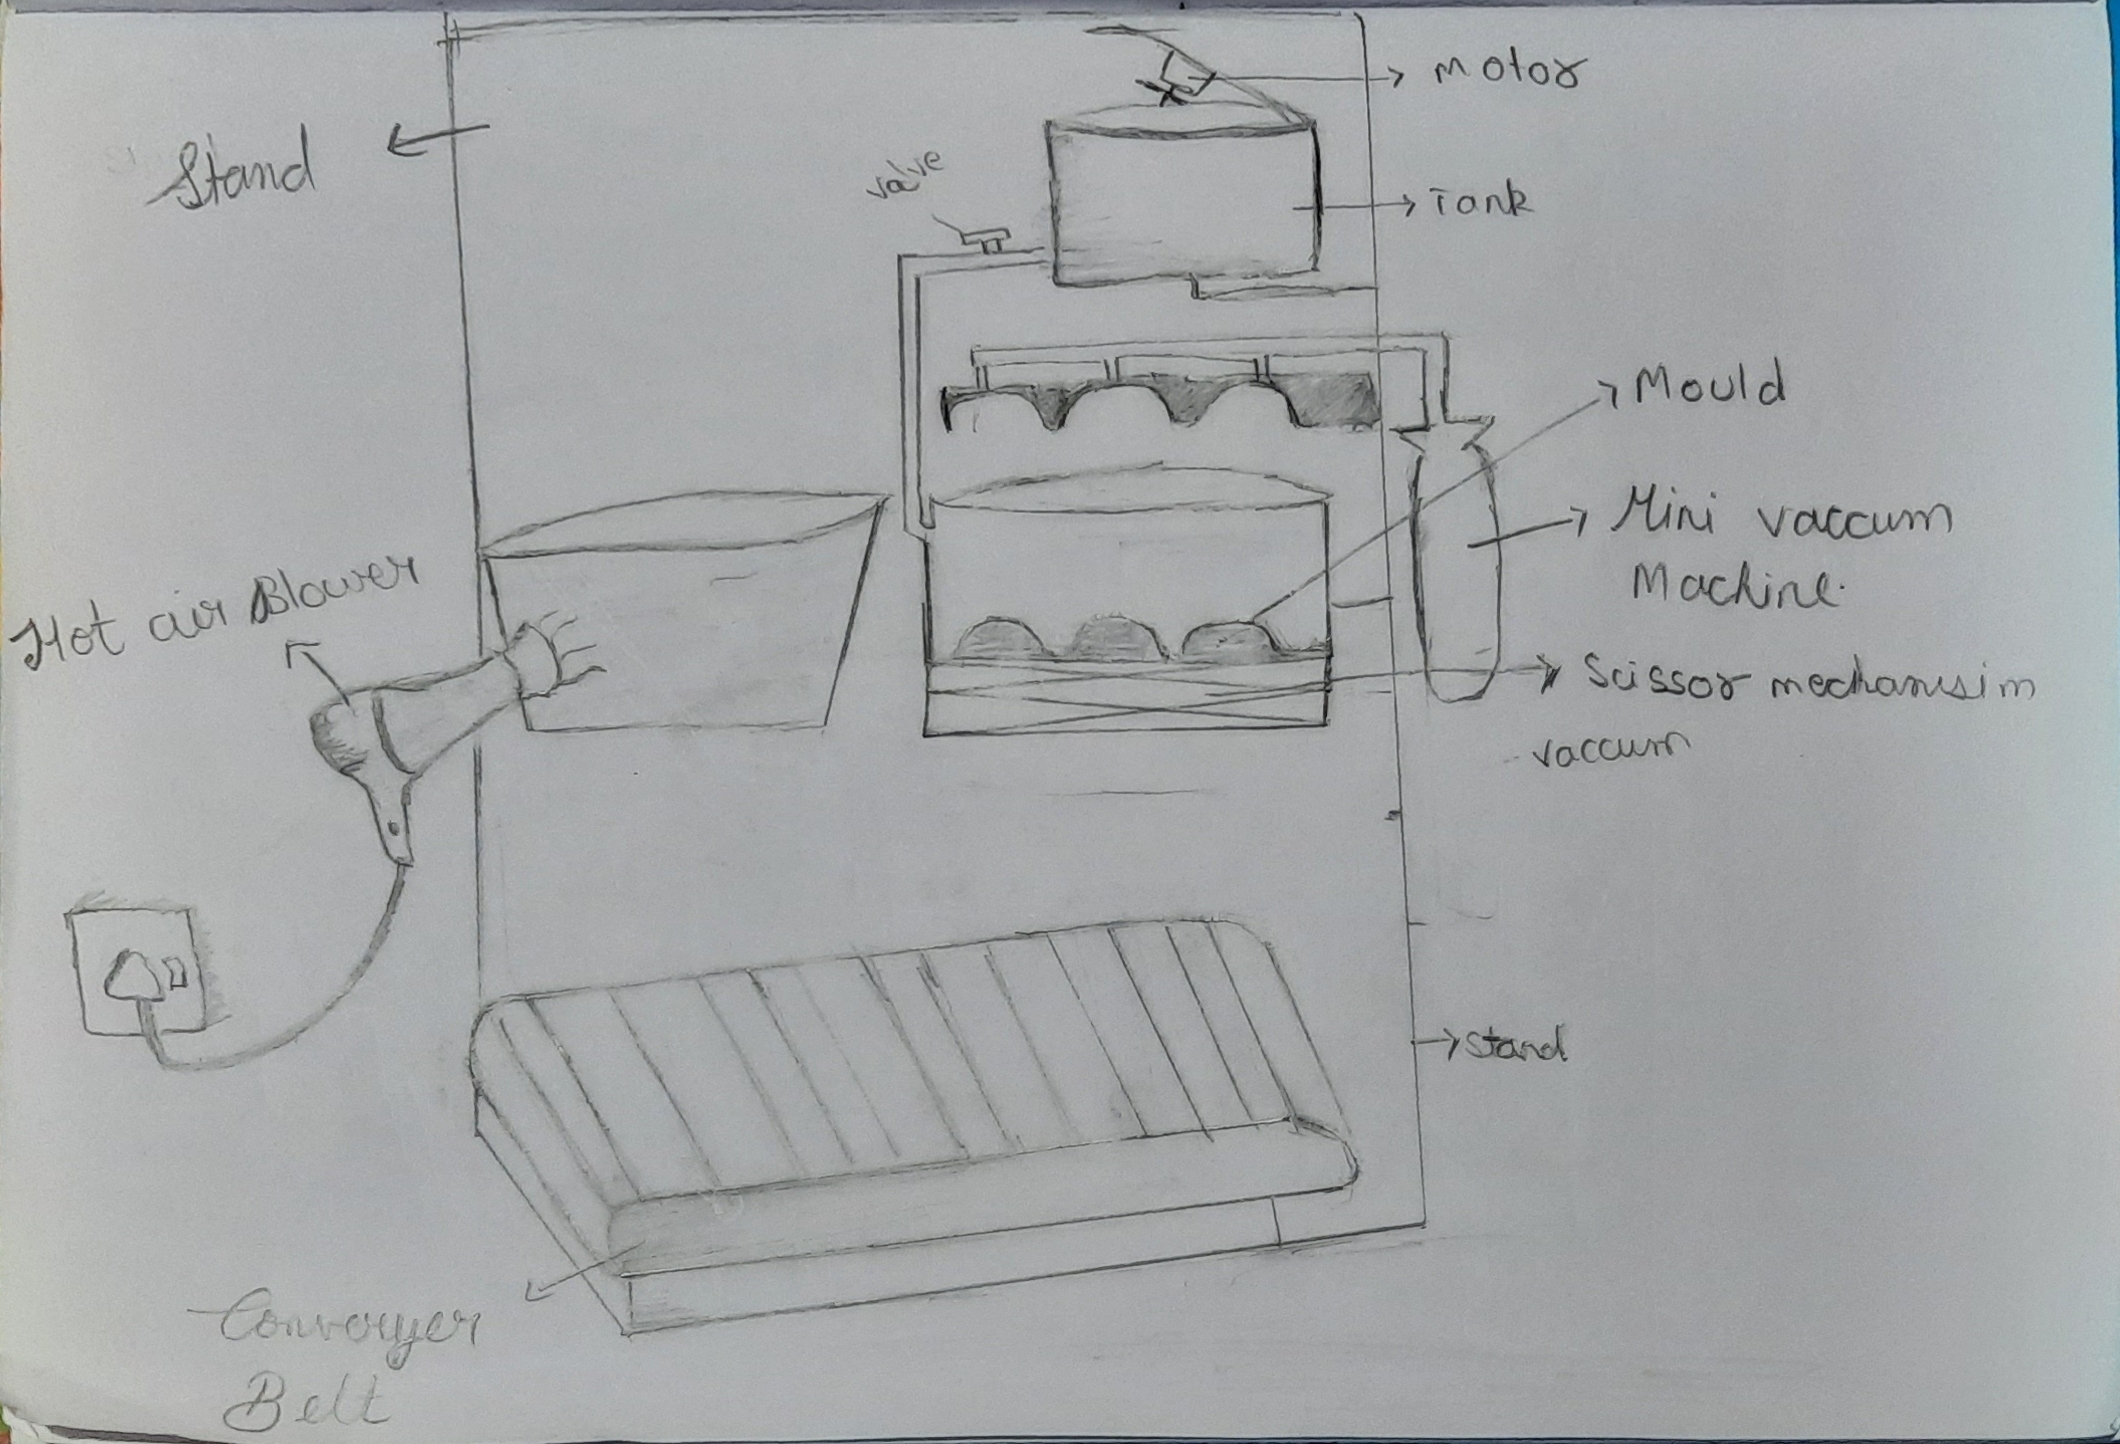 Motor
Stand
valve
Tank
Mould
Mini vaccum
Machine.
Hot air Blower
Scissor mechanisim
vaccum
Stand
Converyer
Belt